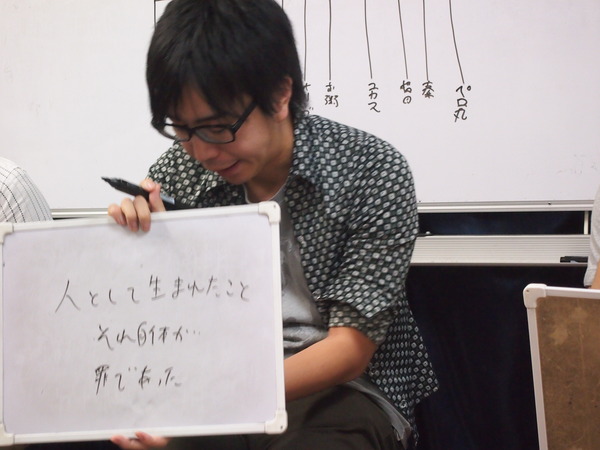 人として生まれたこと
それ自体が…
罪であった
ペロ丸
秦
お粥